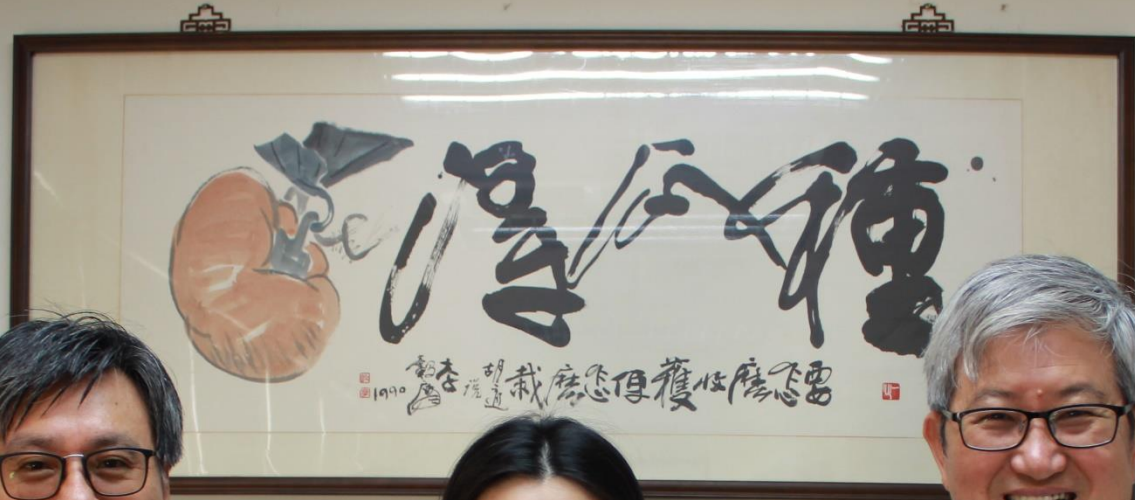 種瓜得
要怎麼收獲便怎麼栽 胡適語 李轂摩 1990